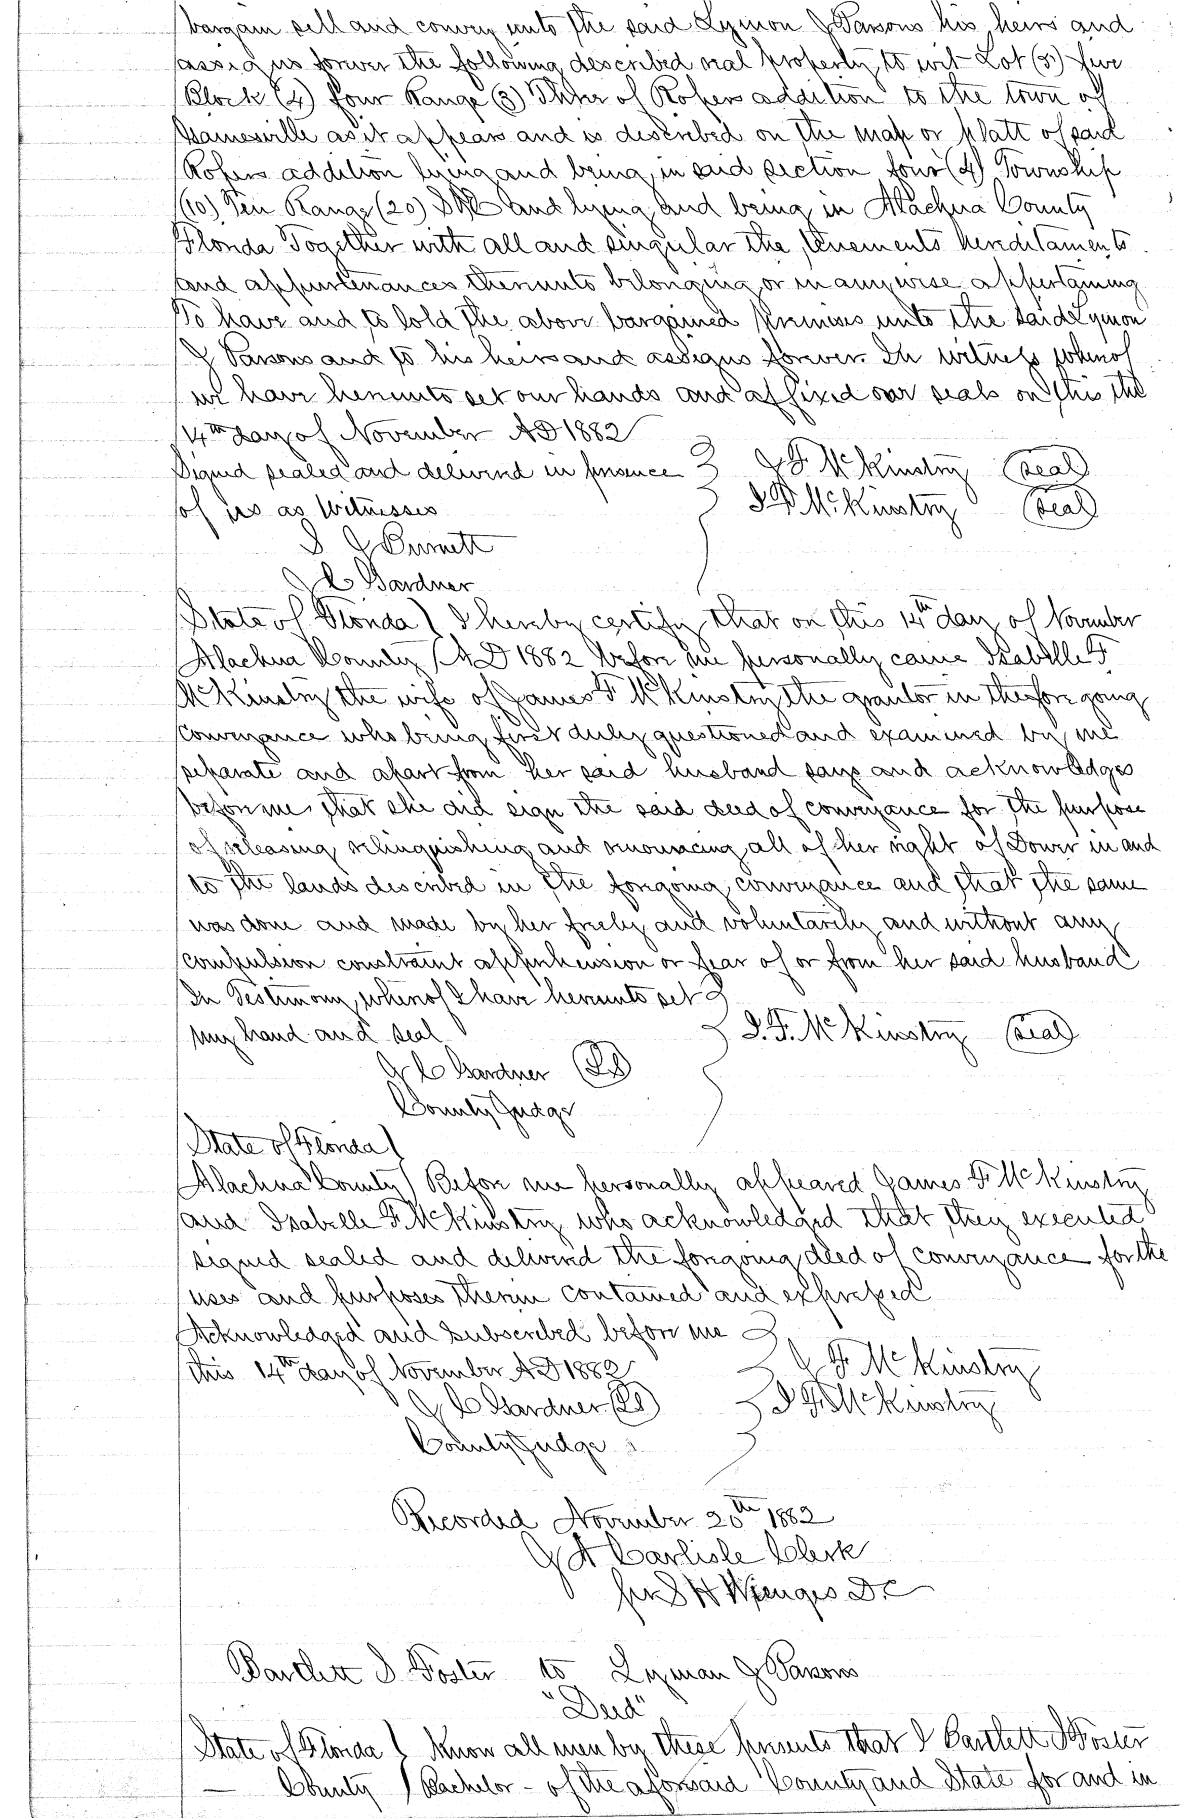 bargain sell and convey unto the said Lymon J Parsons his heirs and
assigns forever the following described real property to wit Lot (5) five
Block (4) four Range (3) Three of Ropers addition to the town of
Gainesville as it appears and is described on the map or platt of said
Ropers addition lying and being in said section four (4) Township
(10) Ten Range (20) S&E and lying and being in Alachua County
Florida Together with all and singular the tenements hereditaments
and appurtenances thereunto belonging or in anywise appertaining
To have and to hold the above bargained premises unto the said Lymon
J Parsons and to his heirs and assigns forever. In witness whereof
we have hereunto set our hands and affixed our seals on this the
14th day of November AD 1882
Signed sealed and delivered in presence J F McKinstry (Seal)
of us as Witnesses I F McKinstry (Seal)
S J Burnett
J C Gardner
State of Florida ) I hereby certify that on this 14th day of November
Alachua County ) AD 1882 before me personally came Isabelle F
McKinstry the wife of James F McKinstry the grantor in the foregoing
conveyance who being first duly questioned and examined by me
separate and apart from her said husband says and acknowledges
before me that she did sign the said deed of conveyance for the purpose
of releasing relinquishing and renouncing all of her right of Dower in and
to the lands described in the foregoing conveyance and that the same
was done and made by her freely and voluntarily and without any
compulsion constraint apprehension or fear of or from her said husband
In Testimony whereof I have hereunto set
my hand and seal I. F. McKinstry (Seal)
J C Gardner (LS)
County Judge
State of Florida )
Alachua County ) Before me personally appeared James F McKinstry
and Isabelle F McKinstry who acknowledged that they executed
signed sealed and delivered the foregoing deed of conveyance for the
uses and purposes therein contained and expressed
Acknowledged and subscribed before me
this 14th day of November AD 1882 J F McKinstry
J C Gardner (LS) I F McKinstry
County Judge
Recorded November 20th 1882
J A Carlisle Clerk
per S H Wienges D.C
Bartlett S. Foster to Lyman J Parsons
"Deed"
State of Florida ) Know all men by these presents that I Bartlett S Foster
— County ) Bachelor - of the aforesaid County and State for and in